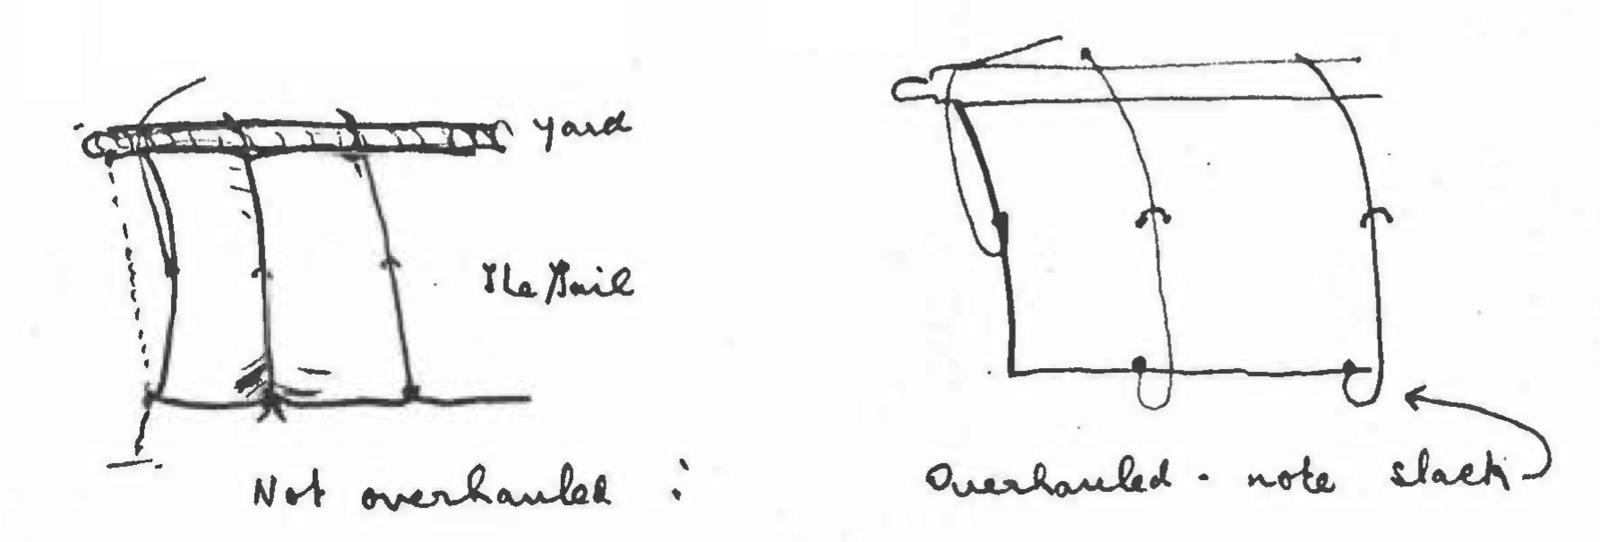 Yard
The Sail
Not overhauled :
Overhauled - note slack